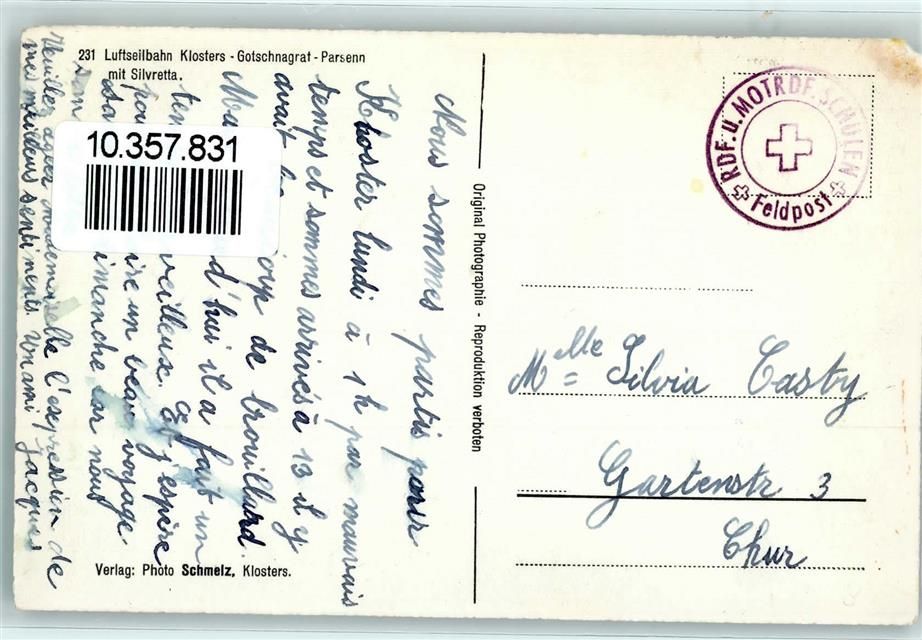 231 Luftseilbahn Klosters - Gotschnagrat - Parsenn
mit Silvretta.
Nous sommes partis pour
Kloster lundi à 1 h par mauvais
temps et sommes arrivés à 13 il y
avait de brouillard.
d'hui il a fait un
veilleux. et j'espère
un beau voyage.
imanche car nous
Veuillez agréer mademoiselle l'expression de
mes meilleurs sentiments. Un ami Jacques
10.357.831
Verlag: Photo Schmelz, Klosters.
Original Photographie - Reproduktion verboten
RDF. U. MOTRDF. SCHULEN
Feldpost
Melle Silvia Casty
Gartenstr 3
Chur